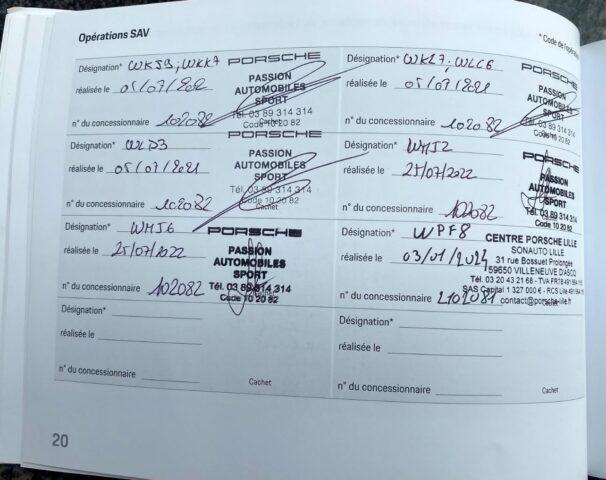 Opérations SAV
* Code de l'opérat
Désignation* WKJ9; WKK7
PORSCHE
PASSION
AUTOMOBILES
SPORT
réalisée le 05/07/2021
Tél. 03 89 314 314
Code 10 20 82
n° du concessionnaire 102082
Désignation* WKZ7; WLC6
PORSCHE
PASSION
AUTOMOBILES
SPORT
réalisée le 05/07/2021
Tél. 03 89 314 314
Code 10 20 82
n° du concessionnaire 102082
Désignation* WLD3
PORSCHE
PASSION
AUTOMOBILES
SPORT
réalisée le 05/07/2021
Tél. 03 89 314 314
Code 10 20 82
n° du concessionnaire 102082
Cachet
Désignation* WMJ2
PORSCHE
PASSION
AUTOMOBILES
SPORT
réalisée le 25/07/2022
Tél. 03 89 314 314
Code 10 20 82
n° du concessionnaire 102082
Désignation* WMJ6
PORSCHE
PASSION
AUTOMOBILES
SPORT
réalisée le 25/07/2022
Tél. 03 89 314 314
Code 10 20 82
n° du concessionnaire 102082
Désignation* WPF8
CENTRE PORSCHE LILLE
SONAUTO LILLE
31 rue Bossuet Prolongée
59650 VILLENEUVE D'ASCQ
réalisée le 03/01/2024
Tél. 03 20 43 21 68 - TVA FR78
SAS Capital 1 327 000 € - RCS Lille
contact@porsche-lille.fr
n° du concessionnaire 2102081
Désignation*
réalisée le
n° du concessionnaire
Cachet
Désignation*
réalisée le
n° du concessionnaire
Cachet
20